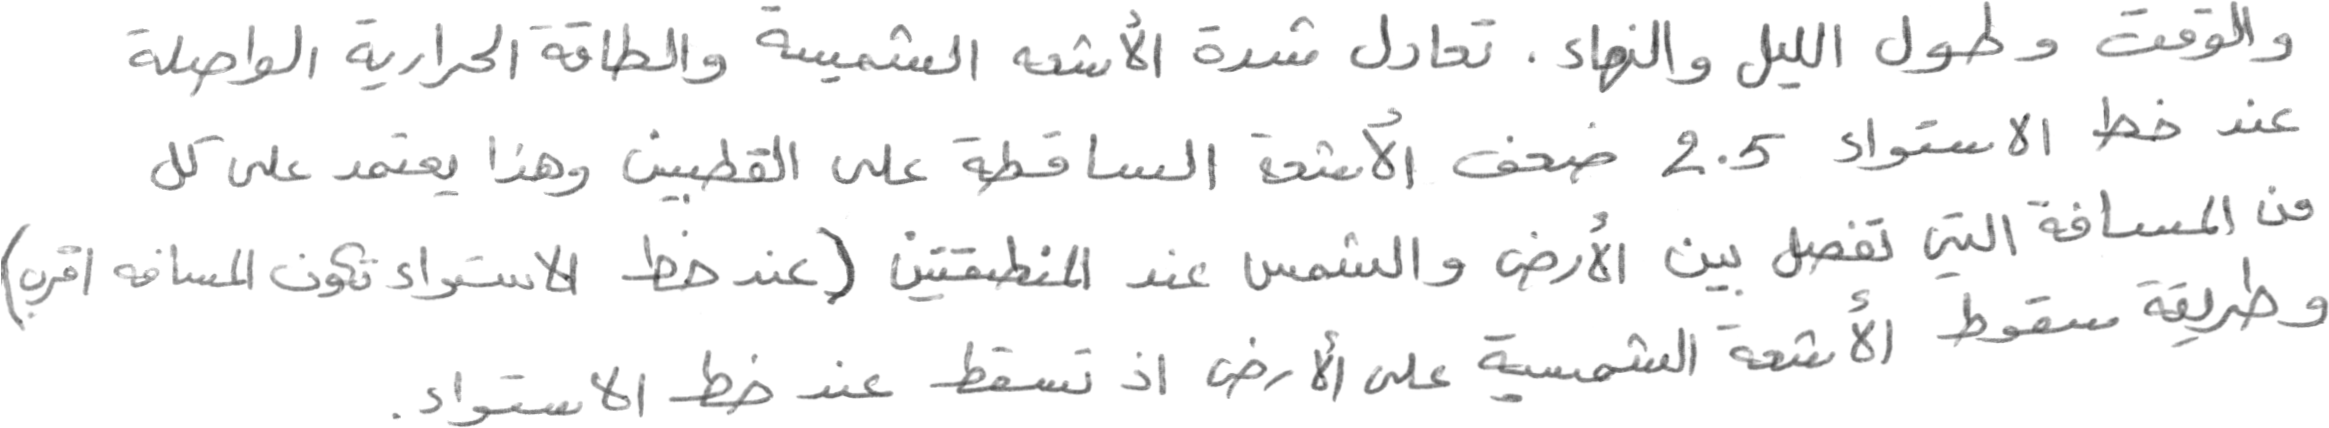 والوقت وطول الليل والنهار. تعادل شدة الأشعه الشمسية والطاقة الحرارية الواصلة
عند خط الاستواء 2.5 ضعف الأشعة الساقطة على القطبين وهذا يعتمد على كل
من المسافة التي تفصل بين الأرض والشمس عند المنطقتين (عند خط الاستواء تكون المسافه اقرب)
وطريقة سقوط الأشعة الشمسية على الأرض اذ تسقط عند خط الاستواء.